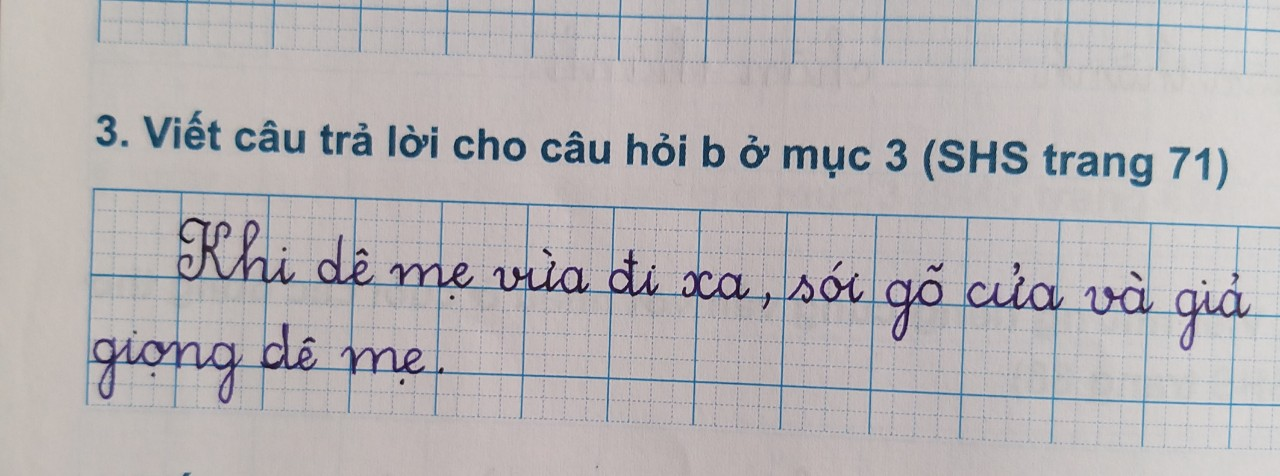 3. Viết câu trả lời cho câu hỏi b ở mục 3 (SHS trang 71)
Khi dê mẹ vừa đi xa, sói gõ cửa và giả
giọng dê mẹ.